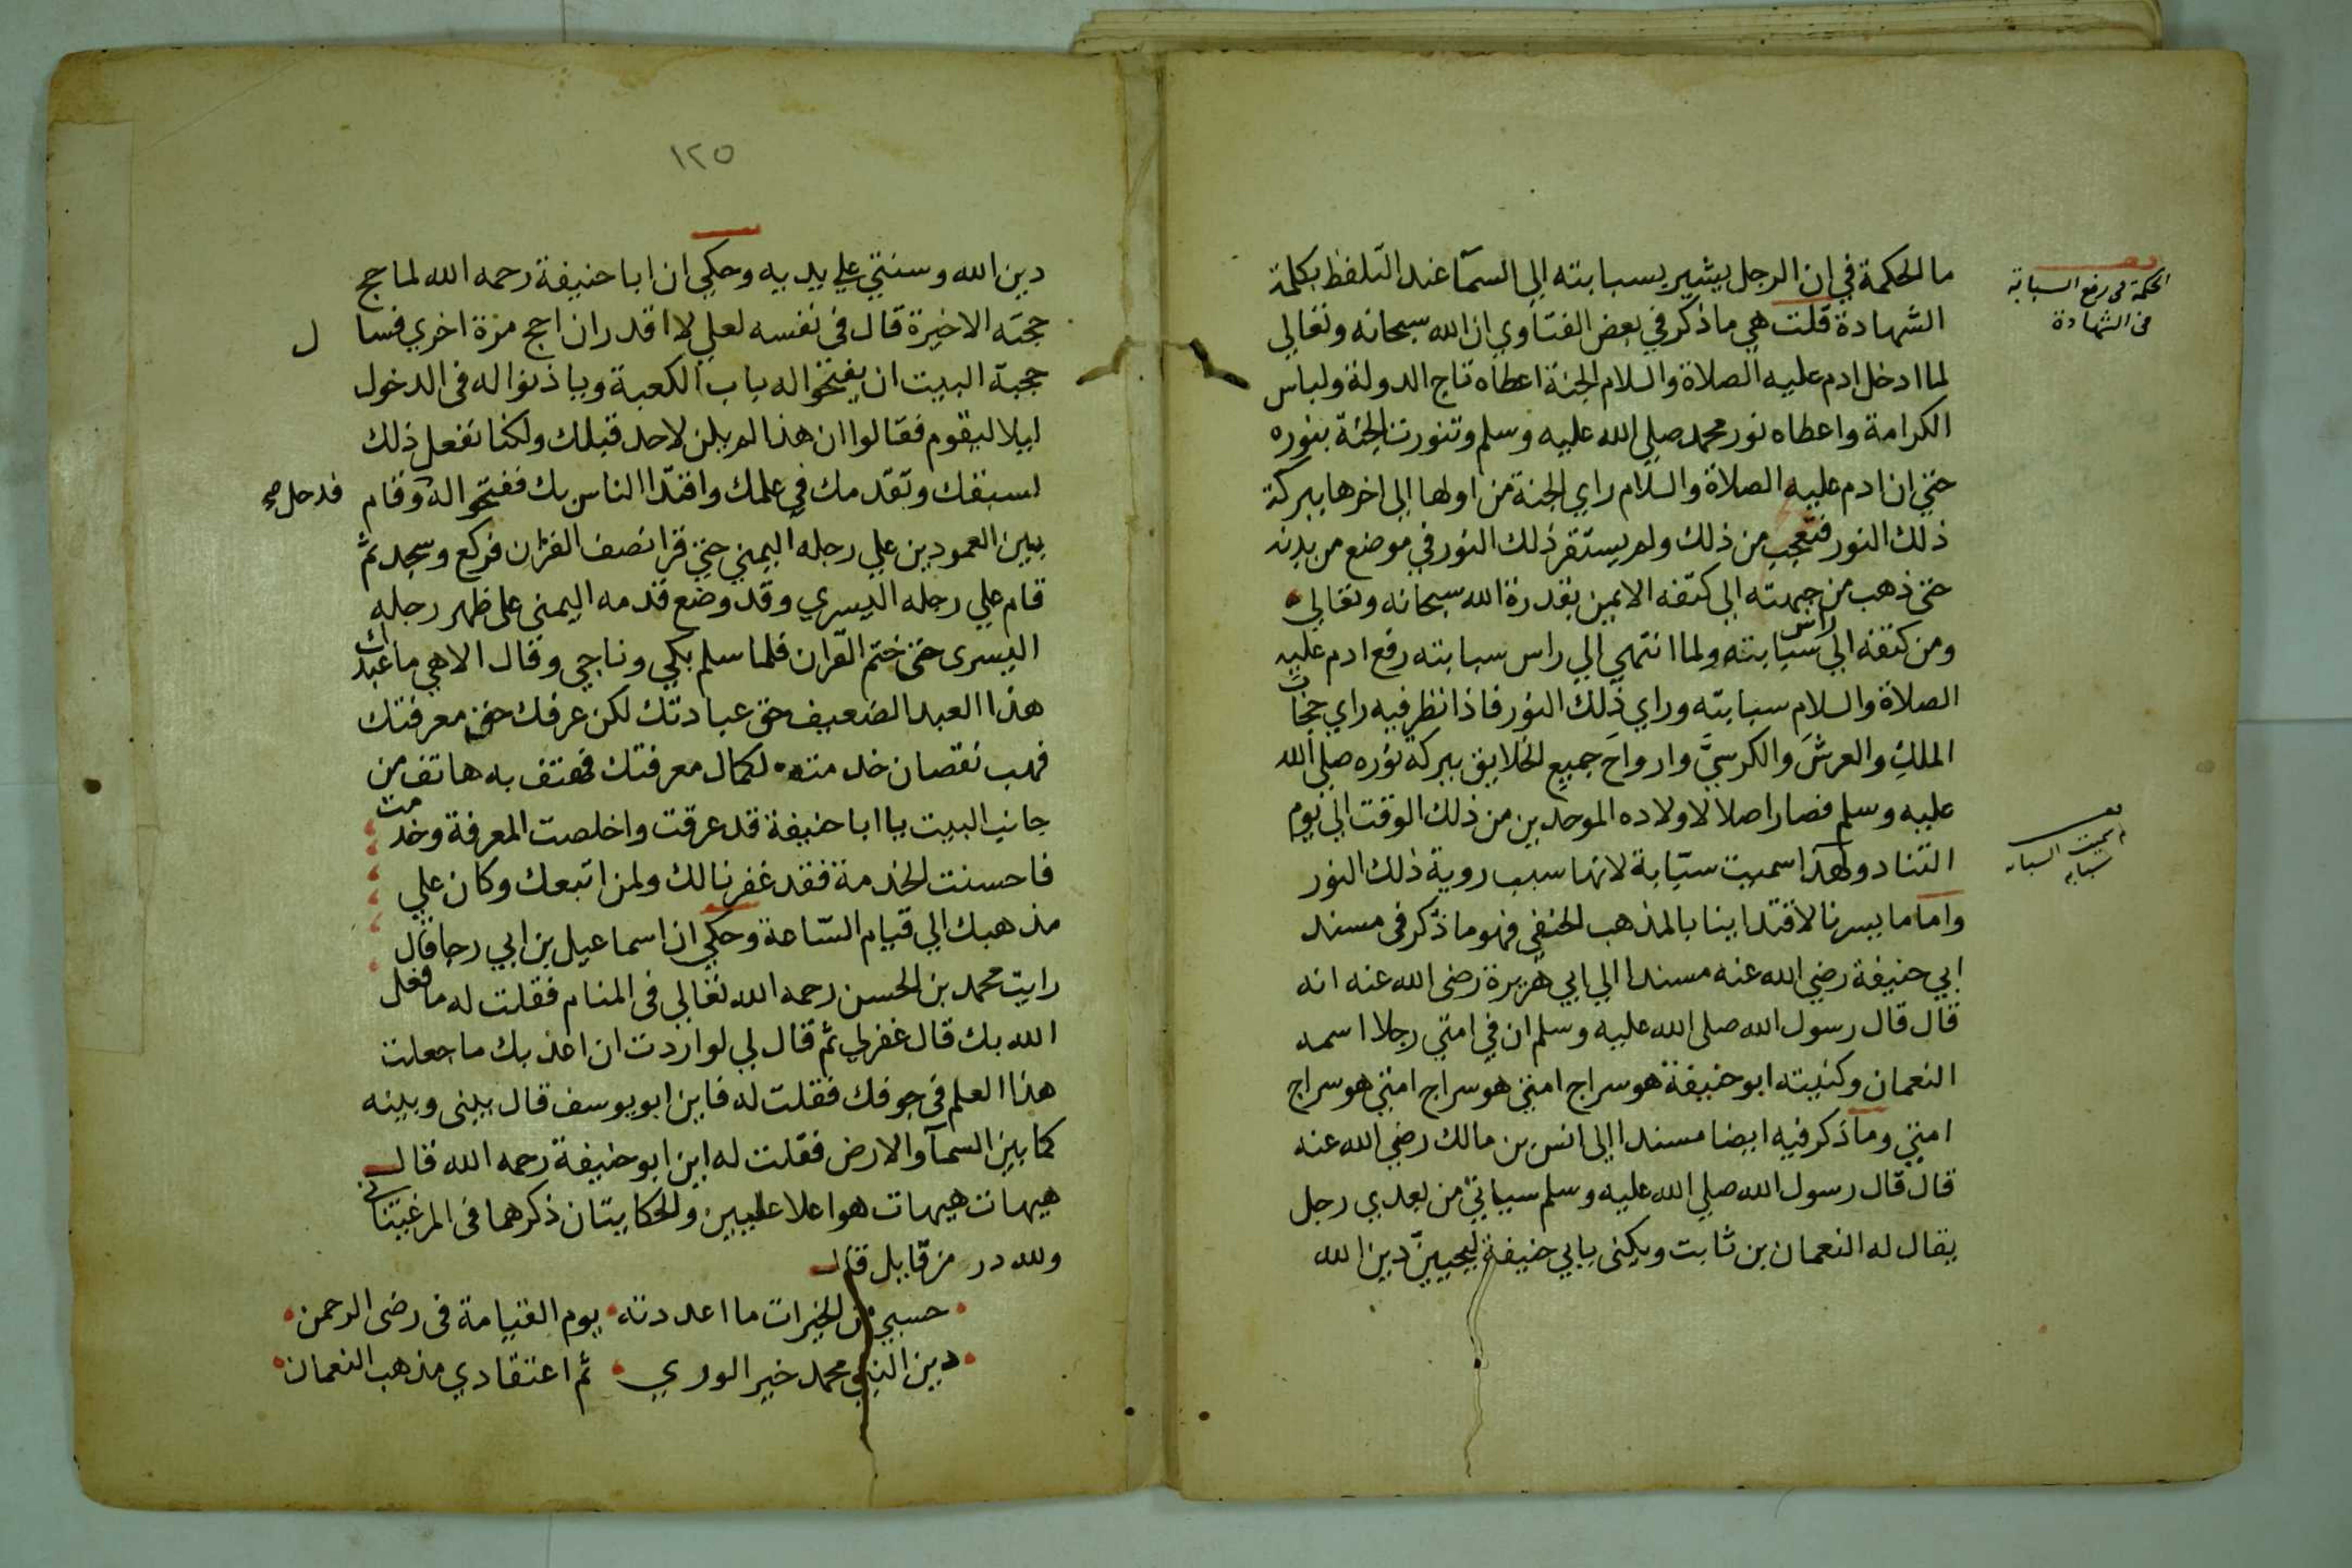 ما الحكمة في ان الرجل يشير بسبابته الى السمآ عند التلفظ بكلمة
الحكمة فى رفع السبابة
فى الشهادة
الشهادة قلت هي ما ذكر في بعض الفتاوي ان الله سبحانه وتعالي
لما ادخل ادم عليه الصلاة والسلام الجنة اعطاه تاج الدولة ولباس
الكرامة واعطاه نور محمد صلي الله عليه وسلم وتنورت الجنة بنوره
حتي ان ادم عليه الصلاة والسلام راي الجنة من اولها الى اخرها ببركة
ذلك النور فتعجب من ذلك ولم يستقر ذلك النور في موضع من بدنه
حتى ذهب من جبهته الى كتفه الايمن بقدرة الله سبحانه وتعالي
ومن كتفه الي راس سبابته ولما انتهي الي راس سبابته رفع ادم عليه
الصلاة والسلام سبابته وراي ذلك النور فاذا نظر فيه راي حجابات
الملك والعرش والكرسي وارواح جميع الخلايق ببركة نوره صلى الله
عليه وسلم فصار اصلا لاولاده الموحدين من ذلك الوقت الى يوم
التناد ولهذا سميت سبابة لانها سبب روية ذلك النور
لم سميت السبابه
سبابه
واما ما يسرنا لاقتداينا بالمذهب الحنفي فهو ما ذكر فى مسند
ابي حنيفة رضي الله عنه مسندا الي ابي هريرة رضى الله عنه انه
قال قال رسول الله صلى الله عليه وسلم ان في امتي رجلا اسمه
النعمان وكنيته ابو حنيفة هو سراج امتي هو سراج امتي هو سراج
امتي وما ذكر فيه ايضا مسندا الى انس بن مالك رضي الله عنه
قال قال رسول الله صلي الله عليه وسلم سياتي من بعدي رجل
يقال له النعمان بن ثابت ويكنى بابي حنيفة ليحيين دين الله
١٢٥
دين الله وسنتي علي يديه وحكي ان ابا حنيفة رحمه الله لما حج
حجته الاخيرة قال فى نفسه لعلي لا اقدر ان احج مرة اخري فسا ل
حجبة البيت ان يفتحوا له باب الكعبة وياذنوا له فى الدخول
ليلا ليقوم فقالوا ان هذا لم يكن لاحد قبلك ولكنا نفعل ذلك
لسبقك وتقدمك في علمك واقتدا الناس بك ففتحوا له وقام
فدخل صح
بين العمودين علي رجله اليمني حتي قرا نصف القران فركع وسجد ثم
قام علي رجله اليسري وقد وضع قدمه اليمنى على ظهر رجله
اليسرى حتى ختم القران فلما سلم بكي وناجي وقال الاهي ما عبدك
هذا العبد الضعيف حق عبادتك لكن عرفك حق معرفتك
فهب نقصان خدمته لكمال معرفتك فهتف به هاتف من
جانب البيت يا ابا حنيفة قد عرفت واخلصت المعرفة وخدمت
فاحسنت الخدمة فقد غفرنا لك ولمن اتبعك وكان علي
مذهبك الي قيام الساعة وحكي ان اسماعيل بن ابي رجا قال
رايت محمد بن الحسن رحمه الله تعالي فى المنام فقلت له ما فعل
الله بك قال غفر لي ثم قال لي لو اردت ان اعذبك ما جعلت
هذا العلم فى جوفك فقلت له فاين ابو يوسف قال بيني وبينه
كما بين السمآ والارض فقلت له اين ابو حنيفة رحمه الله قال
هيهات هيهات هو اعلا عليين والحكايتان ذكرهما فى المرغيناني
ولله در من قايل قال
حسبي من الخيرات ما اعددته يوم القيامة فى رضى الرحمن
دين النبي محمد خير الوري ثم اعتقادي مذهب النعمان